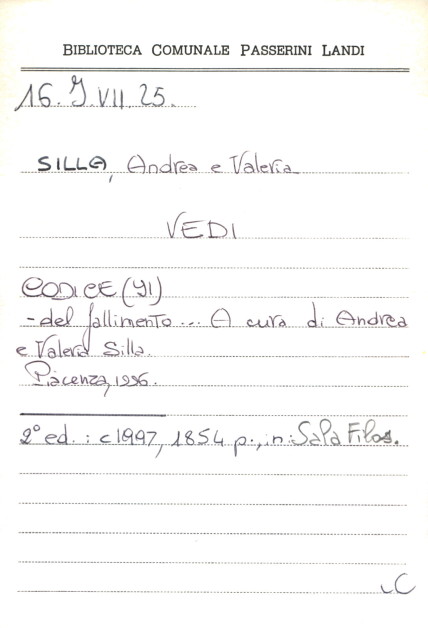 BIBLIOTECA COMUNALE PASSERINI LANDI
16. I. VII. 25.
SILLA, Andrea e Valeria
VEDI
CODICE (Il)
- del fallimento... A cura di Andrea
e Valeria Silla.
Piacenza, 1996.
2° ed. : c1997, 1854 p., in: Sala Filos.